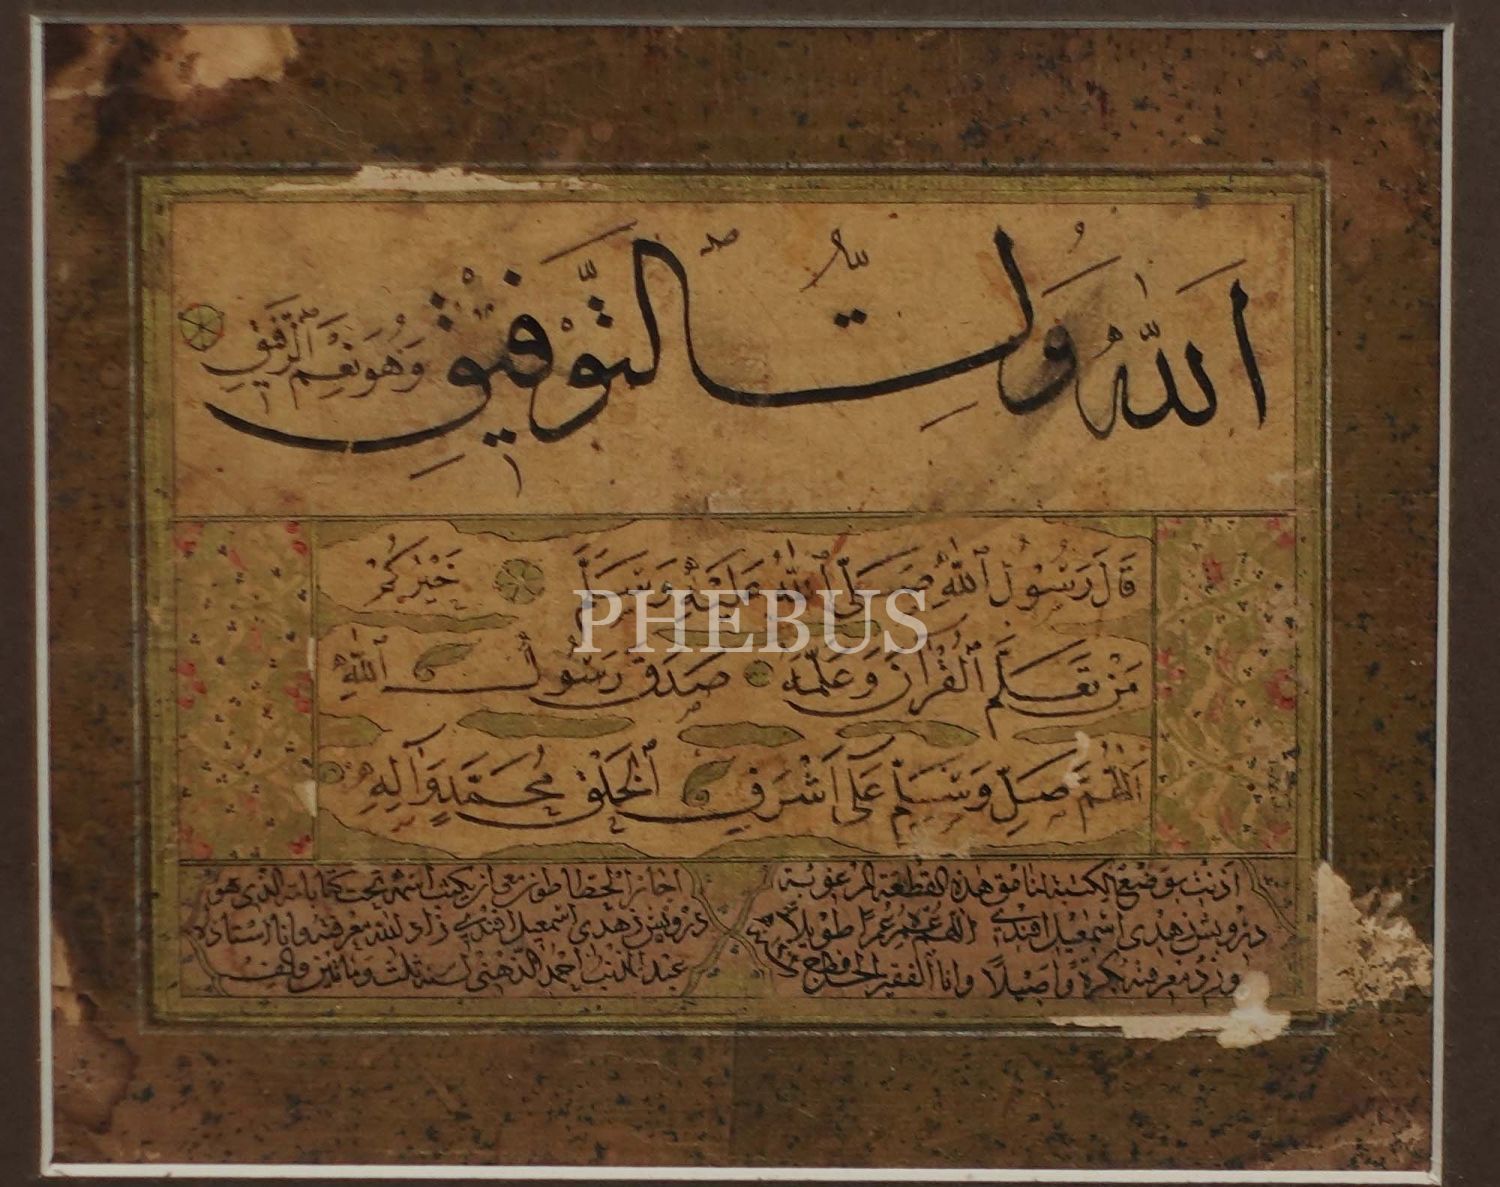 اَللّٰهُ وَلِيُّ التَّوْفِيقِ
وَهُوَ نِعْمَ الرَّفِيقِ
قَالَ رَسُولُ اللّٰهِ صَلَّى اللّٰهُ عَلَيْهِ وَسَلَّمَ خَيْرُكُمْ
مَنْ تَعَلَّمَ الْقُرْآنَ وَعَلَّمَهُ صَدَقَ رَسُولُ اللّٰهِ
اَللّٰهُمَّ صَلِّ وَسَلِّمْ عَلَى اَشْرَفِ الْخَلْقِ مُحَمَّدٍ وَآلِهِ
PHEBUS
اذنت بوضع الكتبة هذه القطعة المرغوبة
درويش زهدى اسمعيل افندى اللهم عمره عمرا طويلا
وزده معرفته بكرة واصيلا وانا الفقير الحافظ
اجاز الخطاطون
درويش زهدى اسمعيل افندى زاد الله معرفته وانا استاده
عبد المذنب احمد الذهنى لسنة ثلث ومائتين والف